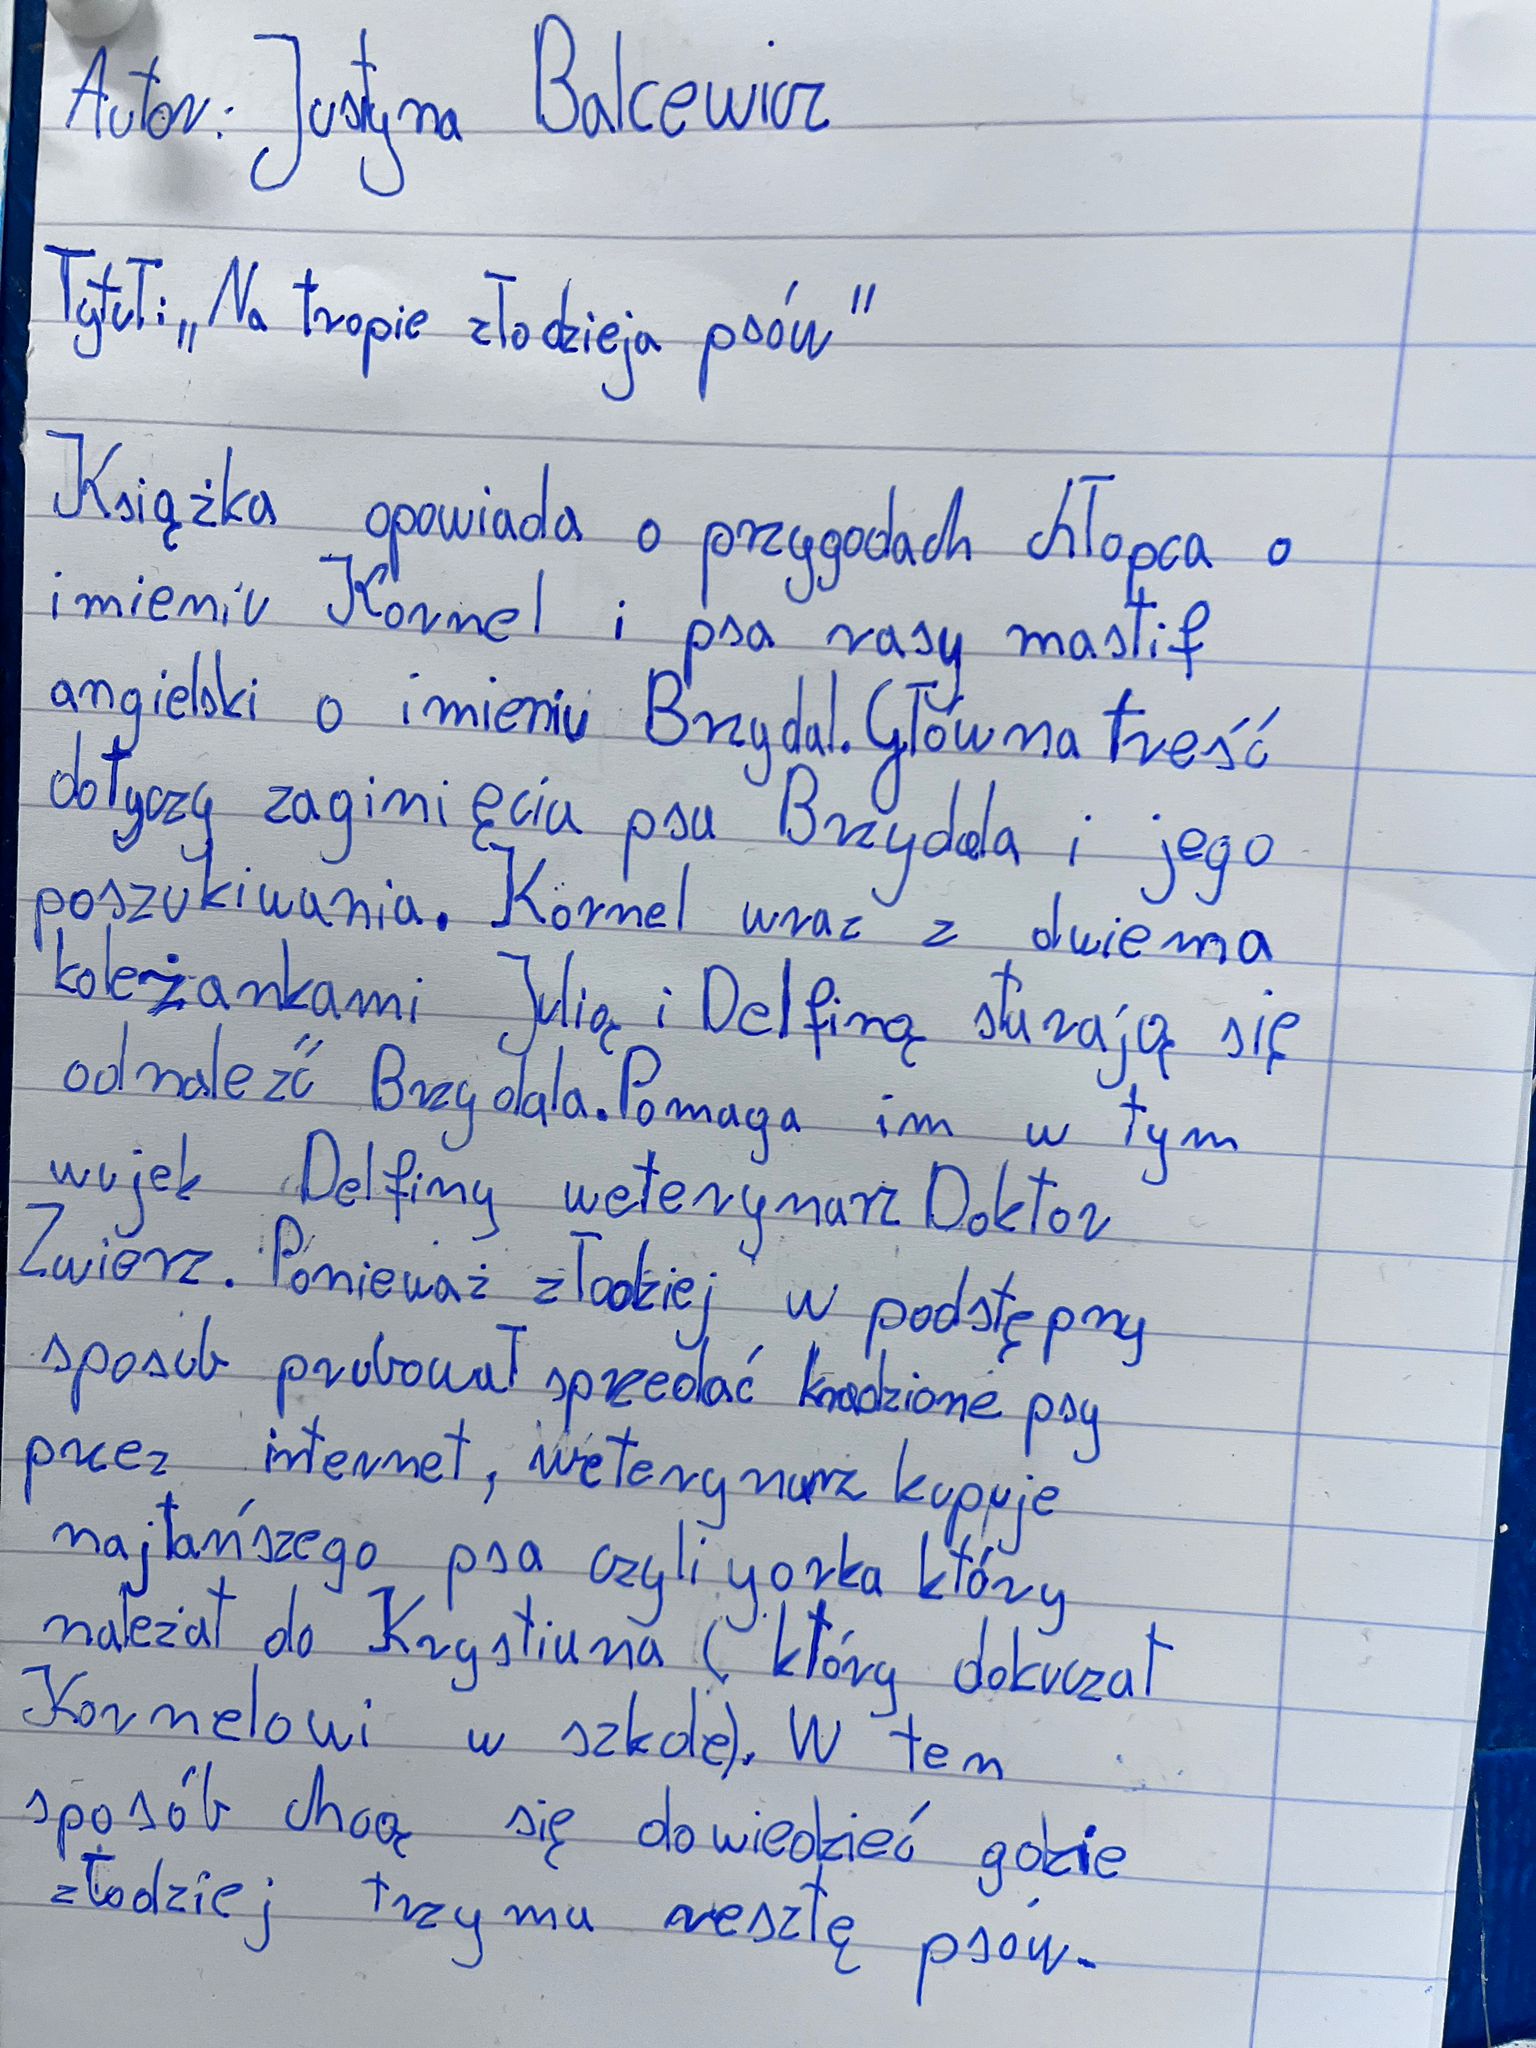 Autor: Justyna Balcewicz
Tytuł: „Na tropie złodzieja psów"
Książka opowiada o przygodach chłopca o
imieniu Kornel i psa rasy mastif
angielski o imieniu Brzydal. Główna treść
dotyczy zaginięcia psa Brzydala i jego
poszukiwania. Kornel wraz z dwiema
koleżankami Julią i Delfiną starają się
odnaleźć Brzydala. Pomaga im w tym
wujek Delfiny weterynarz Doktor
Zwierz. Ponieważ złodziej w podstępny
sposób probował sprzedać kradzione psy
przez internet, weterynarz kupuje
najtańszego psa czyli yorka który
należał do Krystiana (który dokuczał
Kornelowi w szkole). W ten
sposób chcą się dowiedzieć gdzie
złodziej trzyma resztę psów.